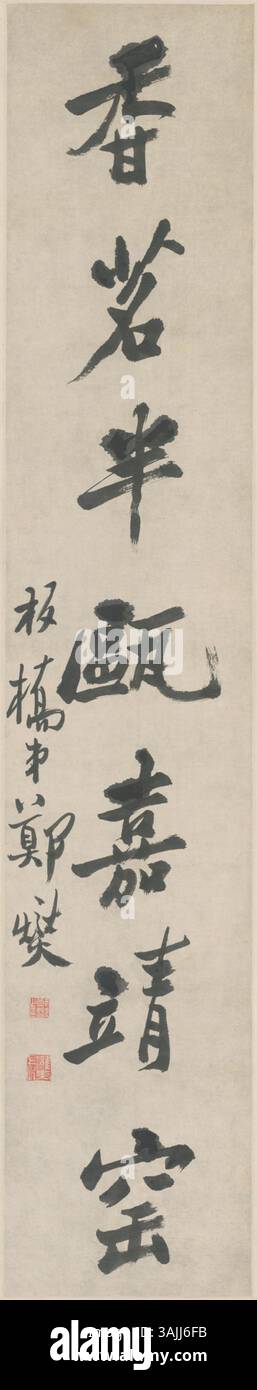 香茗半甌嘉靖窑
板橋弟鄭燮
a
a
alamy
a
a
alamy
Image ID: 3AJJ6FB
www.alamy.com